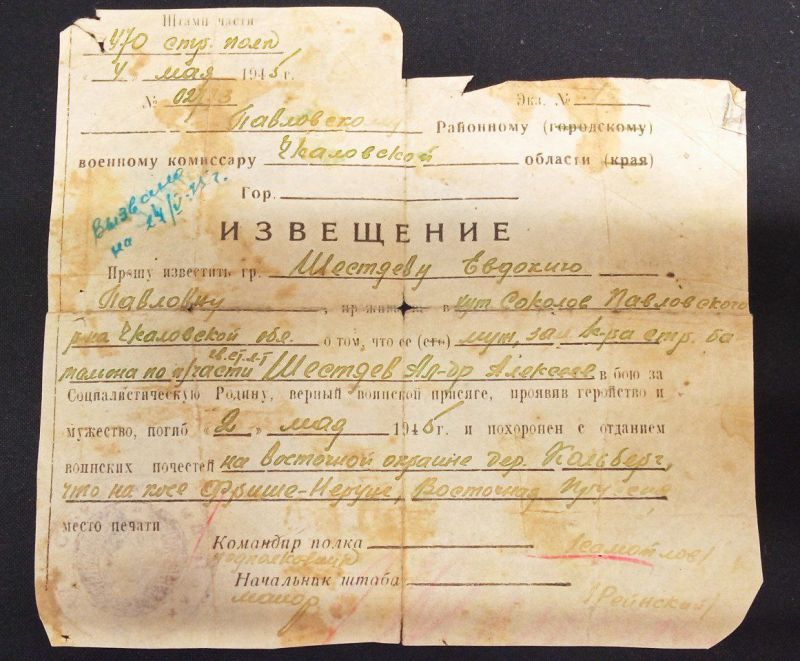 Штамп части
470 стр. полк
4 мая 1945 г.
№ 02/13
Экз. №
Павловскому Районному (городскому)
военному комиссару Чкаловской области (края)
Гор.
Вызвана
на 24/V-45 г.
ИЗВЕЩЕНИЕ
Прошу известить гр. Шестаеву Евдокию
Павловну, прожив. в хут Соколов Павловского
р-на Чкаловской обл. о том, что ее (его) муж, зам к-ра стр. ба
тальона по п/части гв. ст. л-т Шестаев Ал-др Алексеев в бою за
Социалистическую Родину, верный воинской присяге, проявив геройство и
мужество, погиб «2» мая 1945 г. и похоронен с отданием
воинских почестей на восточной окраине дер. Кольберг,
что на косе Фрише-Нерунг, Восточная
место печати
Командир полка
подполковник
Начальник штаба
майор /Рейнский/